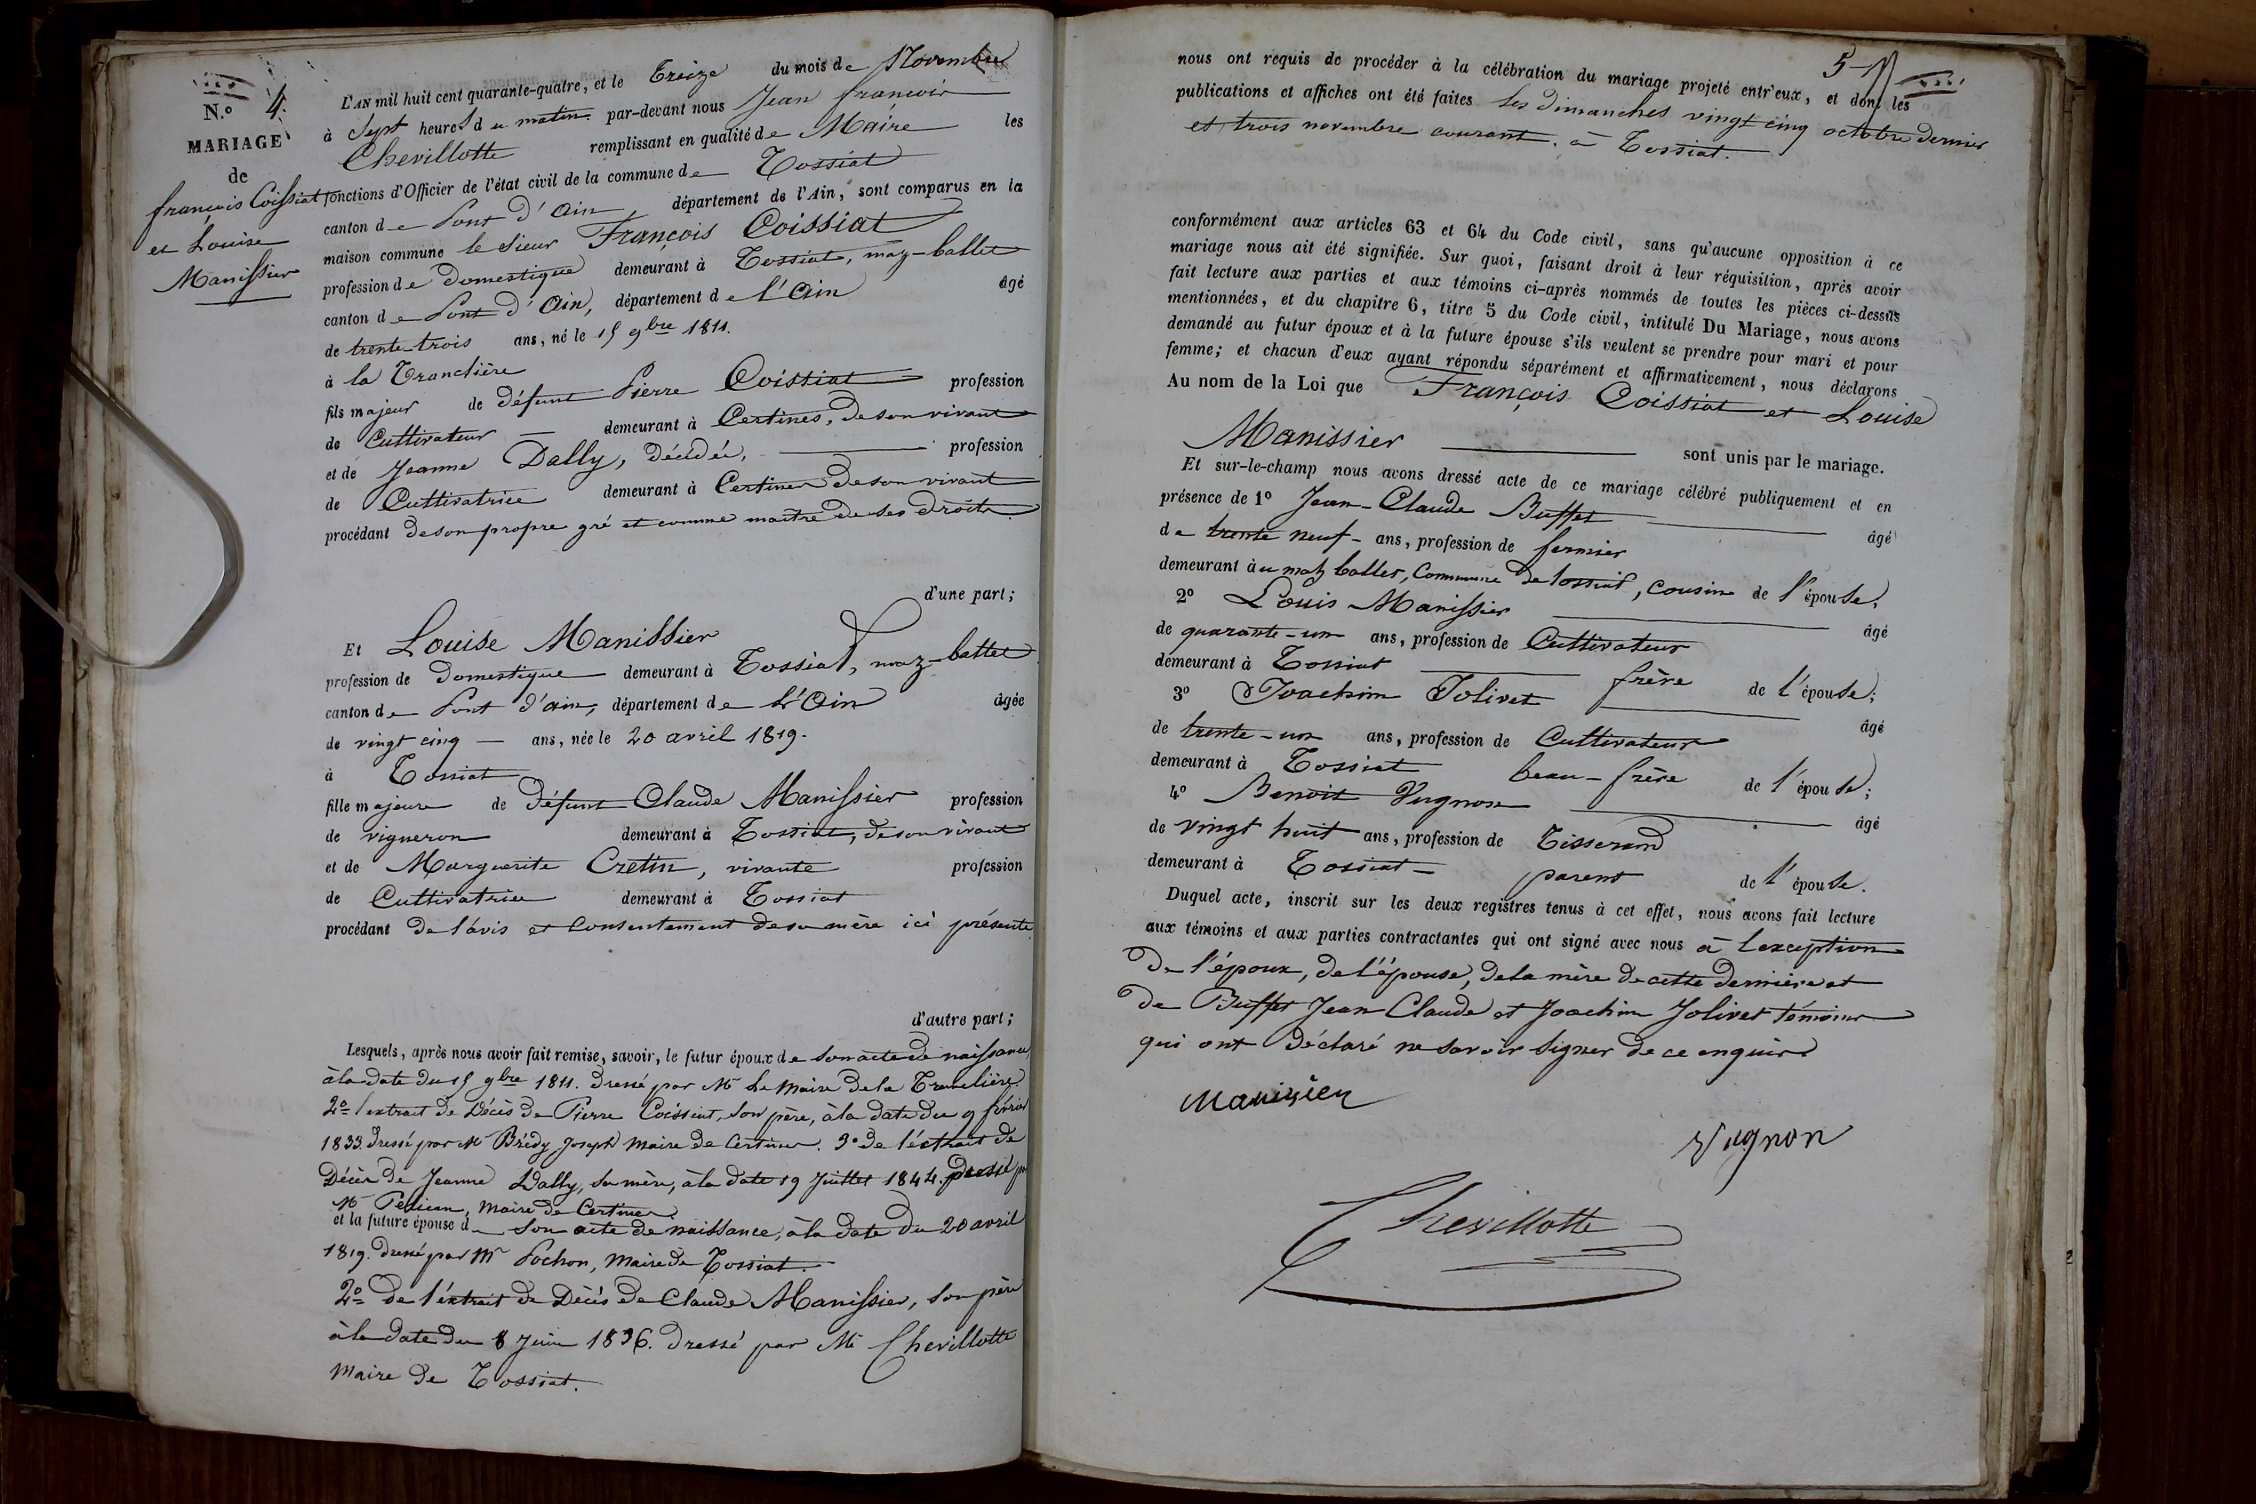 N.º 4.
MARIAGE
de
françois Coissiat
et Louise
Manissier
L'AN mil huit cent quarante-quatre, et le treize du mois de Novembre
à Sept heures du matin par-devant nous Jean françois
Chevillotte remplissant en qualité de Maire les
fonctions d'Officier de l'état civil de la commune de Tossiat
canton de Pont d'Ain, département de l'Ain, sont comparus en la
maison commune le sieur François Coissiat
profession de domestique demeurant à Tossiat, maz-ballet
canton de Pont d'Ain, département de l'Ain âgé
de trente-trois ans, né le 15 9bre 1811.
à la Tranclière
fils majeur de défunt Pierre Coissiat profession
de Cultivateur demeurant à Certines, de son vivant
et de Jeanne Dally, décédée, profession
de Cultivatrice demeurant à Certines de son vivant
procédant de son propre gré et comme maître de ses droits.
d'une part;
Et Louise Manissier
profession de domestique demeurant à Tossiat, maz-ballet
canton de Pont d'ain, département de L'Ain âgée
de vingt cinq ans, née le 20 avril 1819.
à Tossiat
fille majeure de défunt Claude Manissier profession
de vigneron demeurant à Tossiat, de son vivant
et de Marguerite Cretin, vivante profession
de Cultivatrice demeurant à Tossiat
procédant de l'avis et consentement de sa mère ici présente
d'autre part;
Lesquels, après nous avoir fait remise, savoir, le futur époux de son acte de naissance
à la date du 15 9bre 1811. dressé par Mr Le Maire de la Tranclière.
2º l'extrait de Décès de Pierre Coissiat, son père, à la date du 9 février
1833. dressé par Mr Brédy Joseph Maire de Certines. 3º de l'extrait de
Décès de Jeanne Dally, sa mère, à la date 19 Juillet 1844. dressé par
Mr Maire de Certines
et la future épouse de son acte de naissance, à la date du 20 avril
1819. dressé par Mr Pochon, Maire de Tossiat.
2º de l'extrait de Décès de Claude Manissier, son père
à la date du 8 Juin 1836. dressé par Mr Chevillotte
Maire de Tossiat.
5
nous ont requis de procéder à la célébration du mariage projeté entr'eux, et dont les
publications et affiches ont été faites les dimanches vingt cinq octobre dernier
et trois novembre courant. à Tossiat.
conformément aux articles 63 et 64 du Code civil, sans qu'aucune opposition à ce
mariage nous ait été signifiée. Sur quoi, faisant droit à leur réquisition, après avoir
fait lecture aux parties et aux témoins ci-après nommés de toutes les pièces ci-dessus
mentionnées, et du chapitre 6, titre 5 du Code civil, intitulé Du Mariage, nous avons
demandé au futur époux et à la future épouse s'ils veulent se prendre pour mari et pour
femme; et chacun d'eux ayant répondu séparément et affirmativement, nous déclarons
Au nom de la Loi que François Coissiat et Louise
Manissier sont unis par le mariage.
Et sur-le-champ nous avons dressé acte de ce mariage célébré publiquement et en
présence de 1º Jean-Claude Buffet âgé
de trente neuf ans, profession de fermier
demeurant au maz ballet, Commune de Tossiat, cousin de l'épouse,
2º Louis Manissier âgé
de quarante-un ans, profession de Cultivateur
demeurant à Tossiat frère de l'épouse;
3º Joachim Jolivet âgé
de trente-un ans, profession de Cultivateur
demeurant à Tossiat beau-frère de l'épouse;
4º Benoit Vugnon âgé
de vingt huit ans, profession de Tisserand
demeurant à Tossiat parent de l'épouse.
Duquel acte, inscrit sur les deux registres tenus à cet effet, nous avons fait lecture
aux témoins et aux parties contractantes qui ont signé avec nous à l'exception
de l'époux, de l'épouse, de la mère de cette dernière et
de Buffet Jean Claude et Joachim Jolivet témoins
qui ont déclaré ne savoir signer de ce enquis.
Manissier
Vugnon
Chevillotte